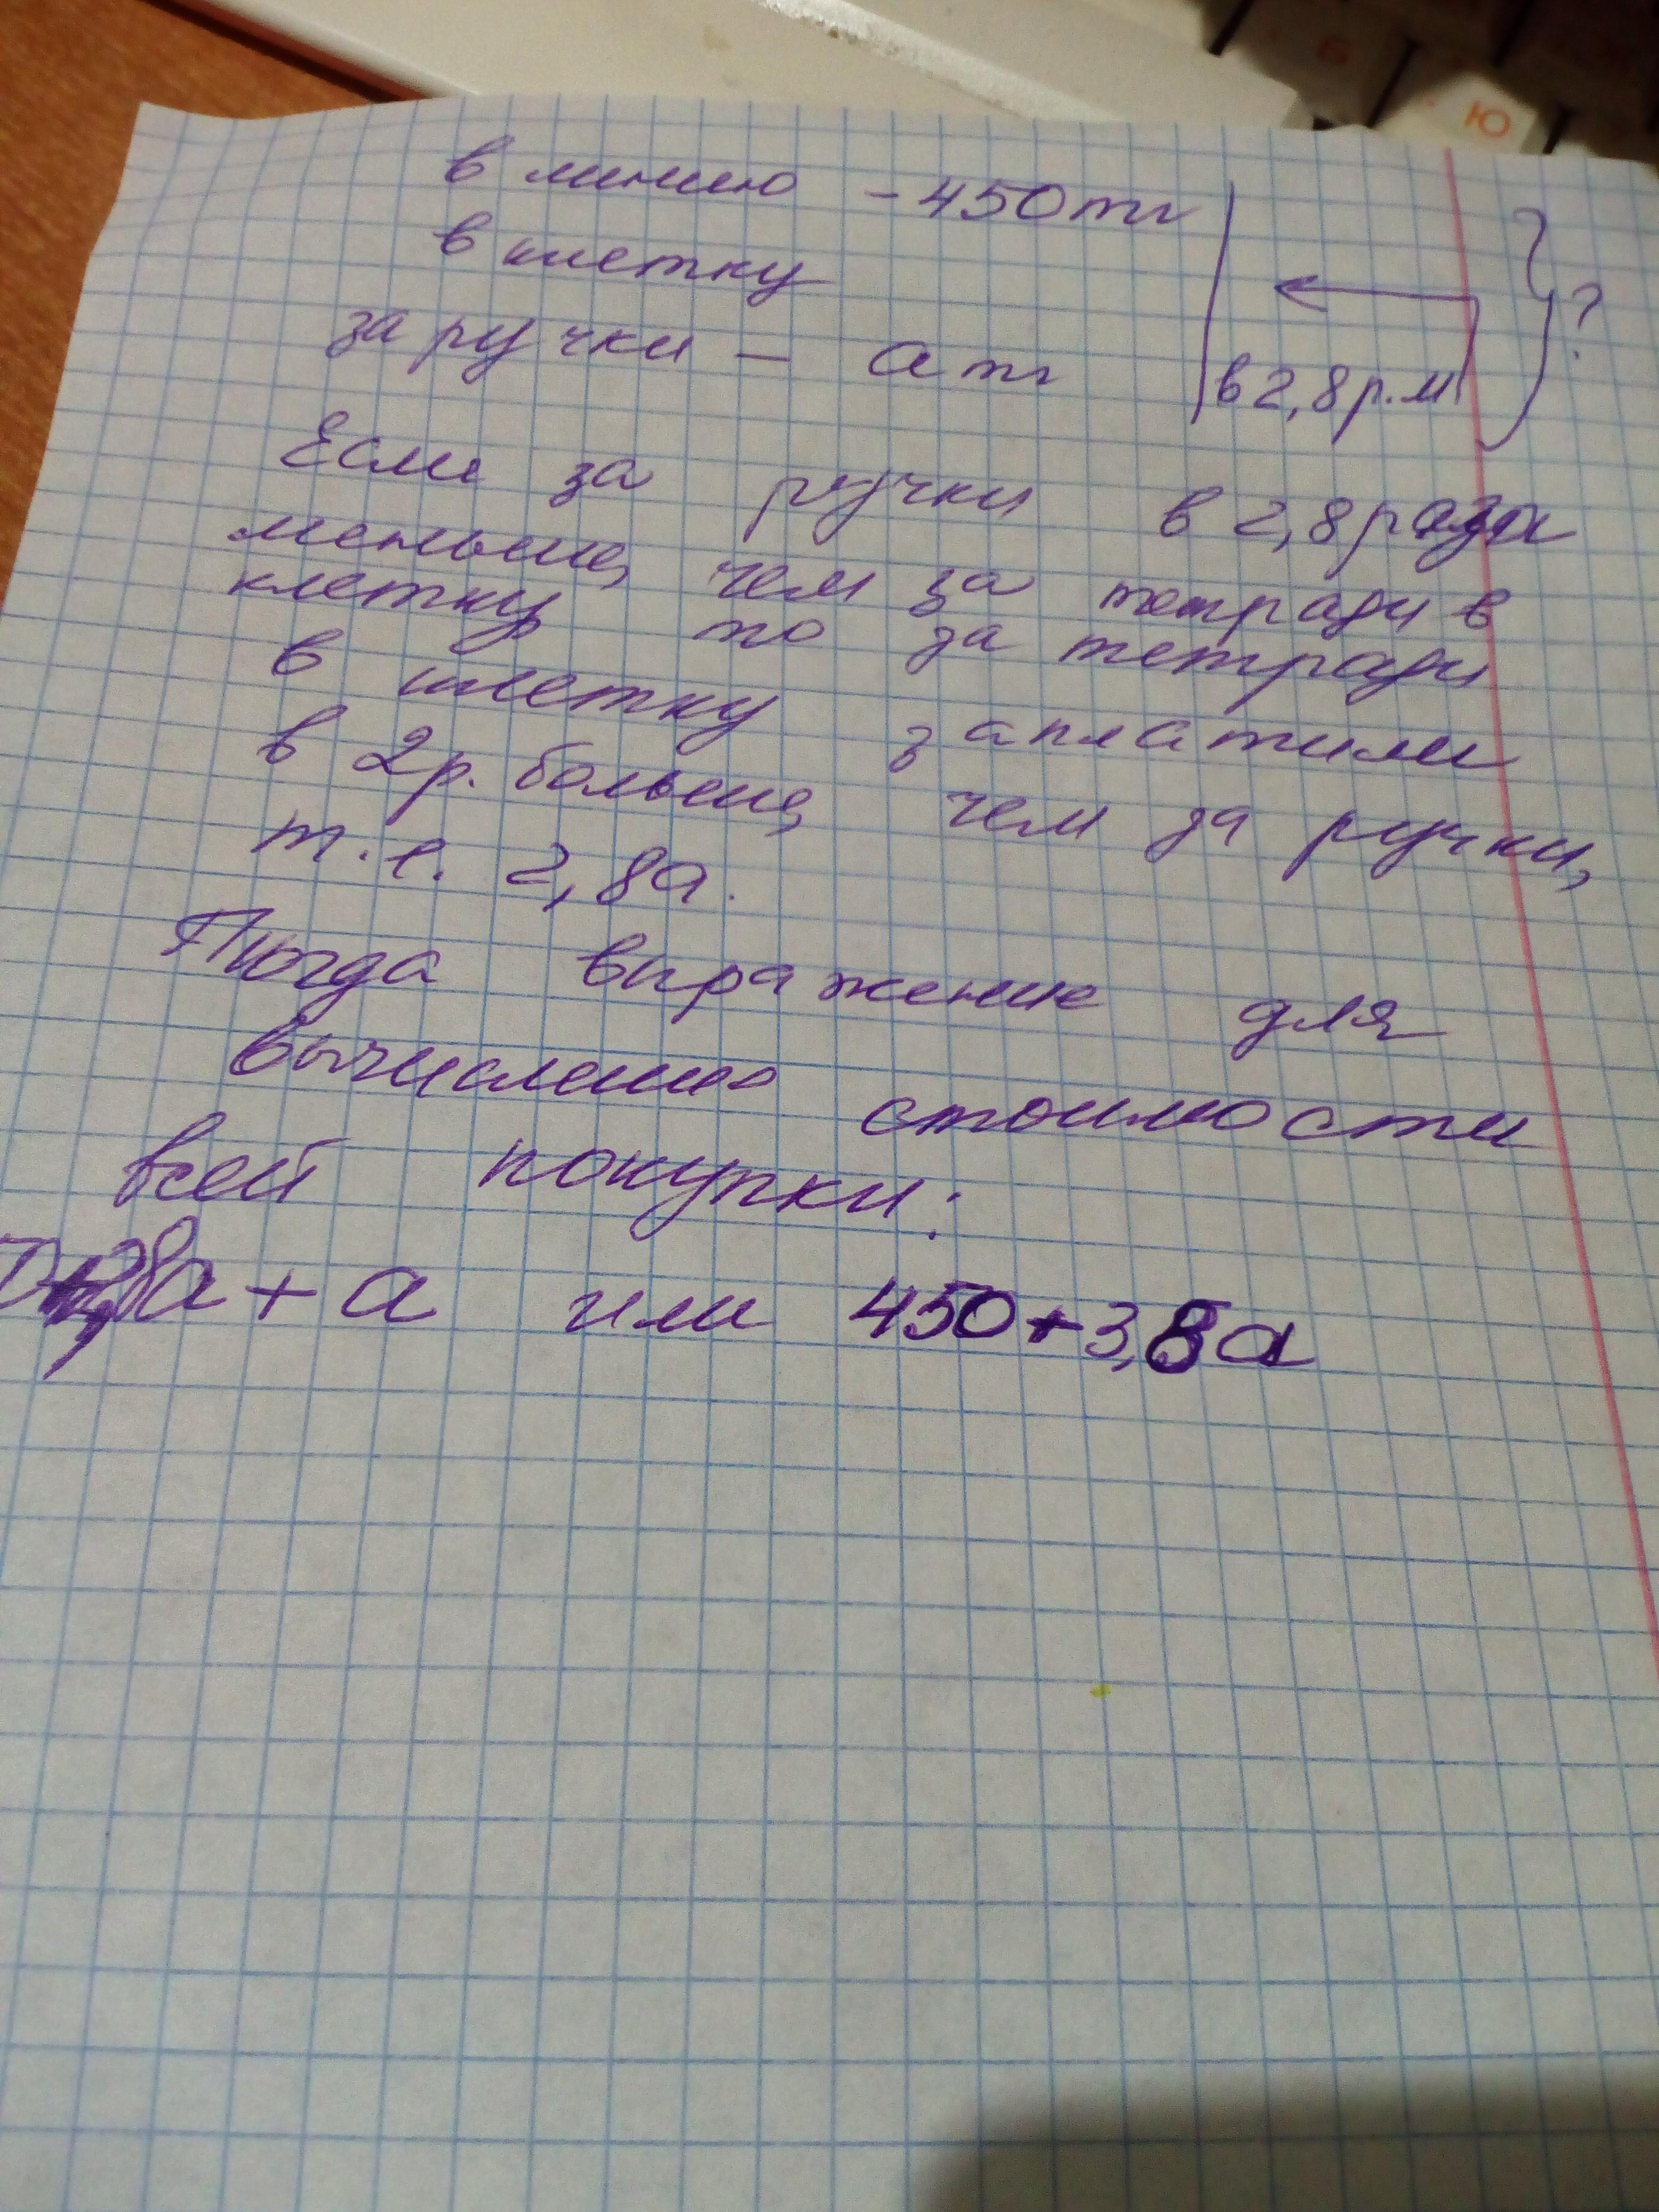 Б
Ю
в линию - 450 тг
в клетку
за ручки - а тг
в 2,8 р. м
?
Если за ручки в 2,8 раза
меньше, чем за тетради в
клетку то за тетради
в клетку заплатили
в 2 р. больше, чем за ручки,
т. е. 2,8а.
Тогда выражение для
вычисления стоимости
всей покупки:
8а + а или 450 + 3,8а